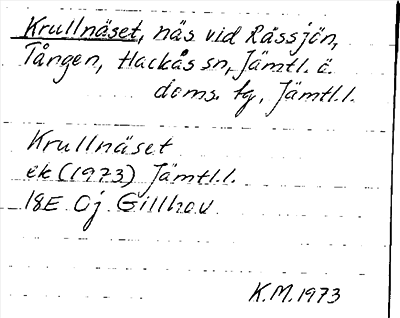 Krullnäset, näs vid Rässjön,
Tången, Hackås sn, Jämtl. ö.
doms. tg, Jämtl.l.
Krullnäset
ek (1973) Jämtl.l.
18E Oj Gillhov
K.M. 1973